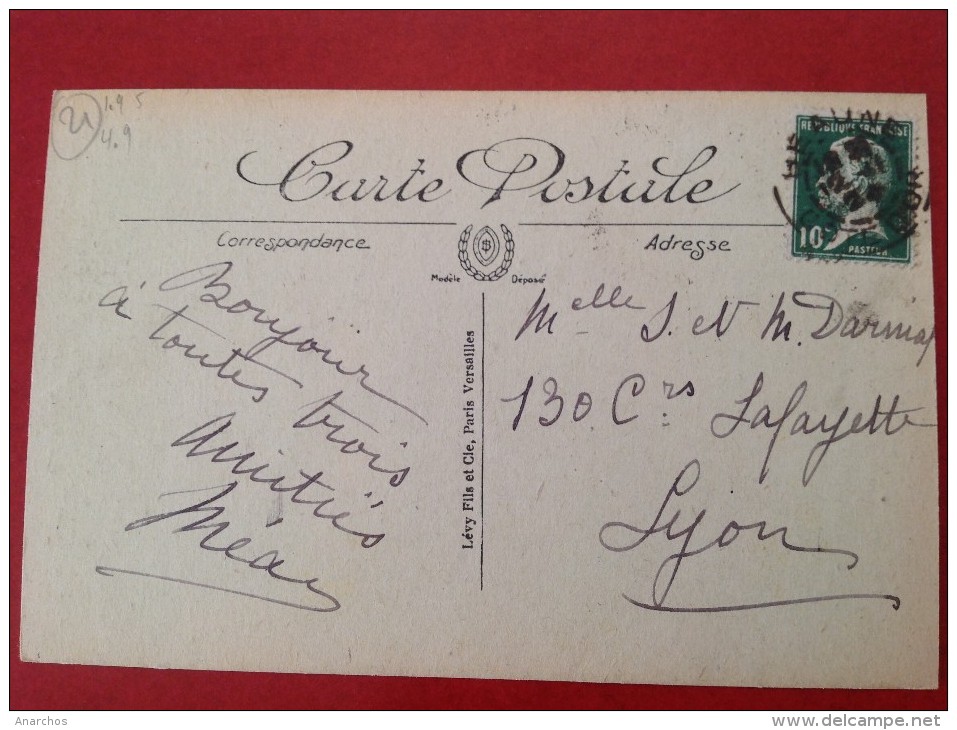 21
1.95
4.9
Carte Postale
Correspondance
Adresse
Modèle Déposé
BEAUNE
REPUBLIQUE FRANCAISE
10c
PASTEUR
Bonjour
à toutes trois
Amitiés
Lévy Fils et Cie, Paris Versailles
Melle S. et M.
130 Crs Lafayette
Lyon
Anarchos
www.delcampe.net